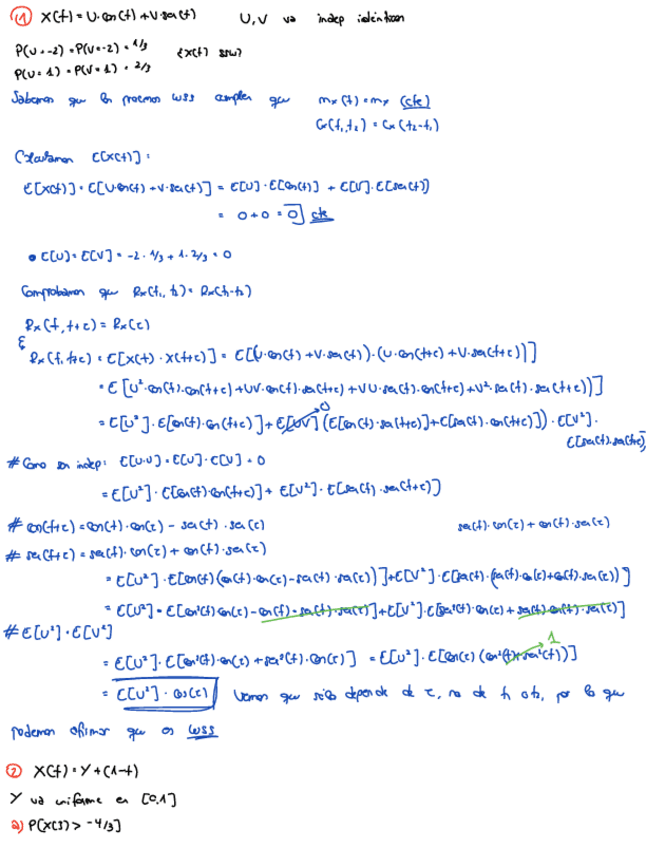 ① X(t) = U·cos(t) + V·sen(t)   U, V va indep idénticas
P(U=-2) = P(V=-2) = 1/3   ¿X(t) SSW?
P(U=1) = P(V=1) = 2/3
Sabemos que los procesos WSS cumplen que   mx(t) = mx (cte)
Cx(t₁,t₂) = Cx(t₂-t₁)
Calculamos E[X(t)]:
E[X(t)] = E[U·cos(t) + V·sen(t)] = E[U]·E[cos(t)] + E[V]·E[sen(t)]
= 0 + 0 = 0 cte
• E[U] = E[V] = -2·1/3 + 1·2/3 = 0
Comprobamos que Rx(t₁,t₂) = Rx(t₁-t₂)
Rx(t,t+τ) = Rx(τ)
Rx(t,t+τ) = E[X(t)·X(t+τ)] = E[(U·cos(t) + V·sen(t))·(U·cos(t+τ) + V·sen(t+τ))]
= E[U²·cos(t)·cos(t+τ) + UV·cos(t)·sen(t+τ) + VU·sen(t)·cos(t+τ) + V²·sen(t)·sen(t+τ)]
= E[U²]·E[cos(t)·cos(t+τ)] + E[UV] 0 (E[cos(t)·sen(t+τ)] + E[sen(t)·cos(t+τ)])·E[V²]·
E[sen(t)·sen(t+τ)]
# Como son indep: E[U·V] = E[U]·E[V] = 0
= E[U²]·E[cos(t)·cos(t+τ)] + E[V²]·E[sen(t)·sen(t+τ)]
# cos(t+τ) = cos(t)·cos(τ) - sen(t)·sen(τ)   sen(t)·cos(τ) + cos(t)·sen(τ)
# sen(t+τ) = sen(t)·cos(τ) + cos(t)·sen(τ)
= E[U²]·E[cos(t)(cos(t)·cos(τ) - sen(t)·sen(τ))] + E[V²]·E[sen(t)·(sen(t)·cos(τ) + cos(t)·sen(τ))]
= E[U²]·E[cos²(t)·cos(τ) - cos(t)·sen(t)·sen(τ)] + E[V²]·E[sen²(t)·cos(τ) + sen(t)·cos(t)·sen(τ)]
# E[U²]·E[V²]
= E[U²]·E[cos²(t)·cos(τ) + sen²(t)·cos(τ)] = E[U²]·E[cos(τ)(cos²(t) + sen²(t))] 1
= E[U²]·cos(τ)   Vemos que sólo depende de τ, no de t₁ o t₂, por lo que
podemos afirmar que es WSS
② X(t) = Y + (1-t)
Y va uniforme en [0,1]
a) P[X(3) > -4/3]